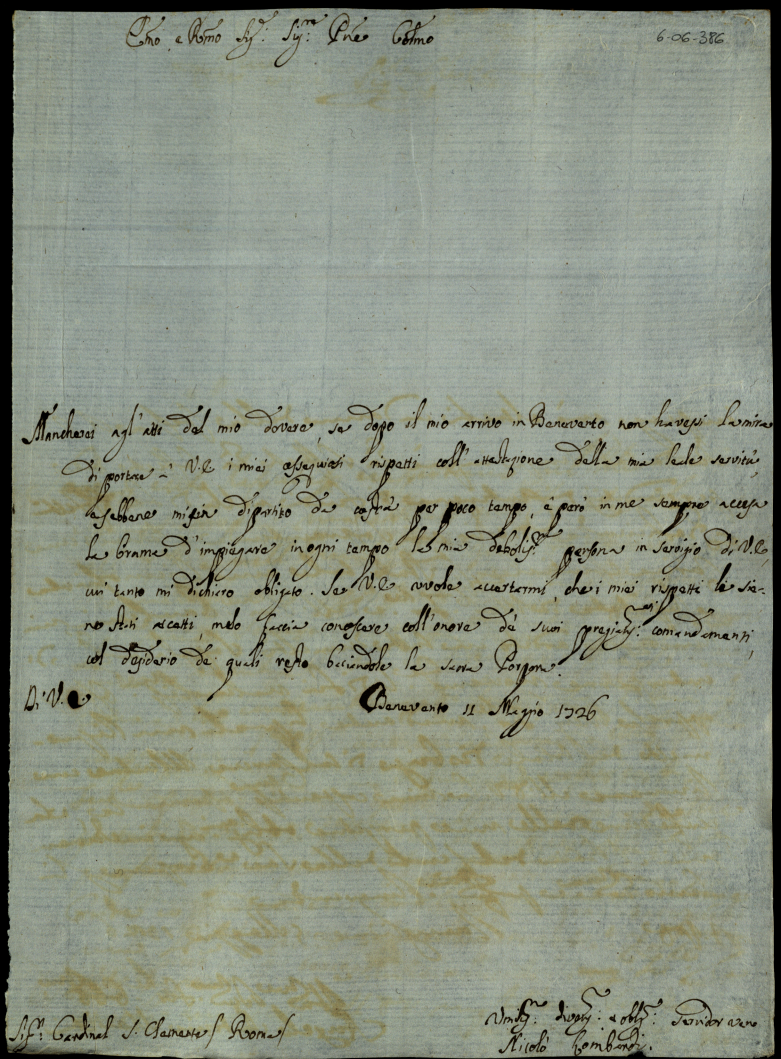 Em̃o e Rm̃o Sig:r Sig:re Pñe Col͠mo
6-06-386
Mancherei agl'atti del mio dovere, se dopo il mio arrivo in Benevento non havessi la mira
di portare à V.E. i miei ossequiosi rispetti coll'attestazione della mia leale servitù,
e sebbene mi sia dipartito da costà per poco tempo, è però in me sempre accesa
la brama d'impiegare in ogni tempo la mia debolis:ma persona in servigio di V.E.,
cui tanto mi dichiaro obligato. Se V.E. vuole accertarmi, che i miei rispetti le sia-
no stati accetti, melo faccia conoscere coll'onore de' suoi pregiatis:mi comandamenti,
col desiderio de quali resto baciandole la sacra Porpora.
Di V.E.
Benevento 11 Maggio 1726
Sig:r Cardinal S. Clemente / Roma /
Umilis:mo divotis:mo e oblig:mo Servidor vero
Nicolò Lombardi.